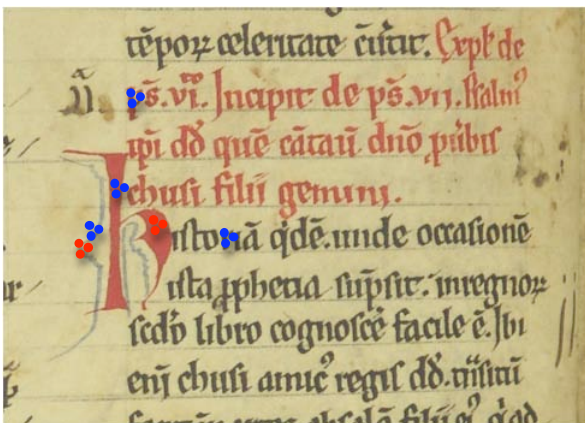 tēporꝝ celeritate cūrrit. Expł de
ps̄. vi. Incipit de ps̄. vii. Psalmꝰ
ip̄i dd̄ quē cātauit dn̄o ꝓ ūbis
chusi filii gemini.
Historiā qͥdē. unde occasionē
ista ꝓphetia sūpsit. in regnorꝝ
scd̄o libro cognoscē facile ē. Ibi
enī chusi amicꝰ regis dd̄.